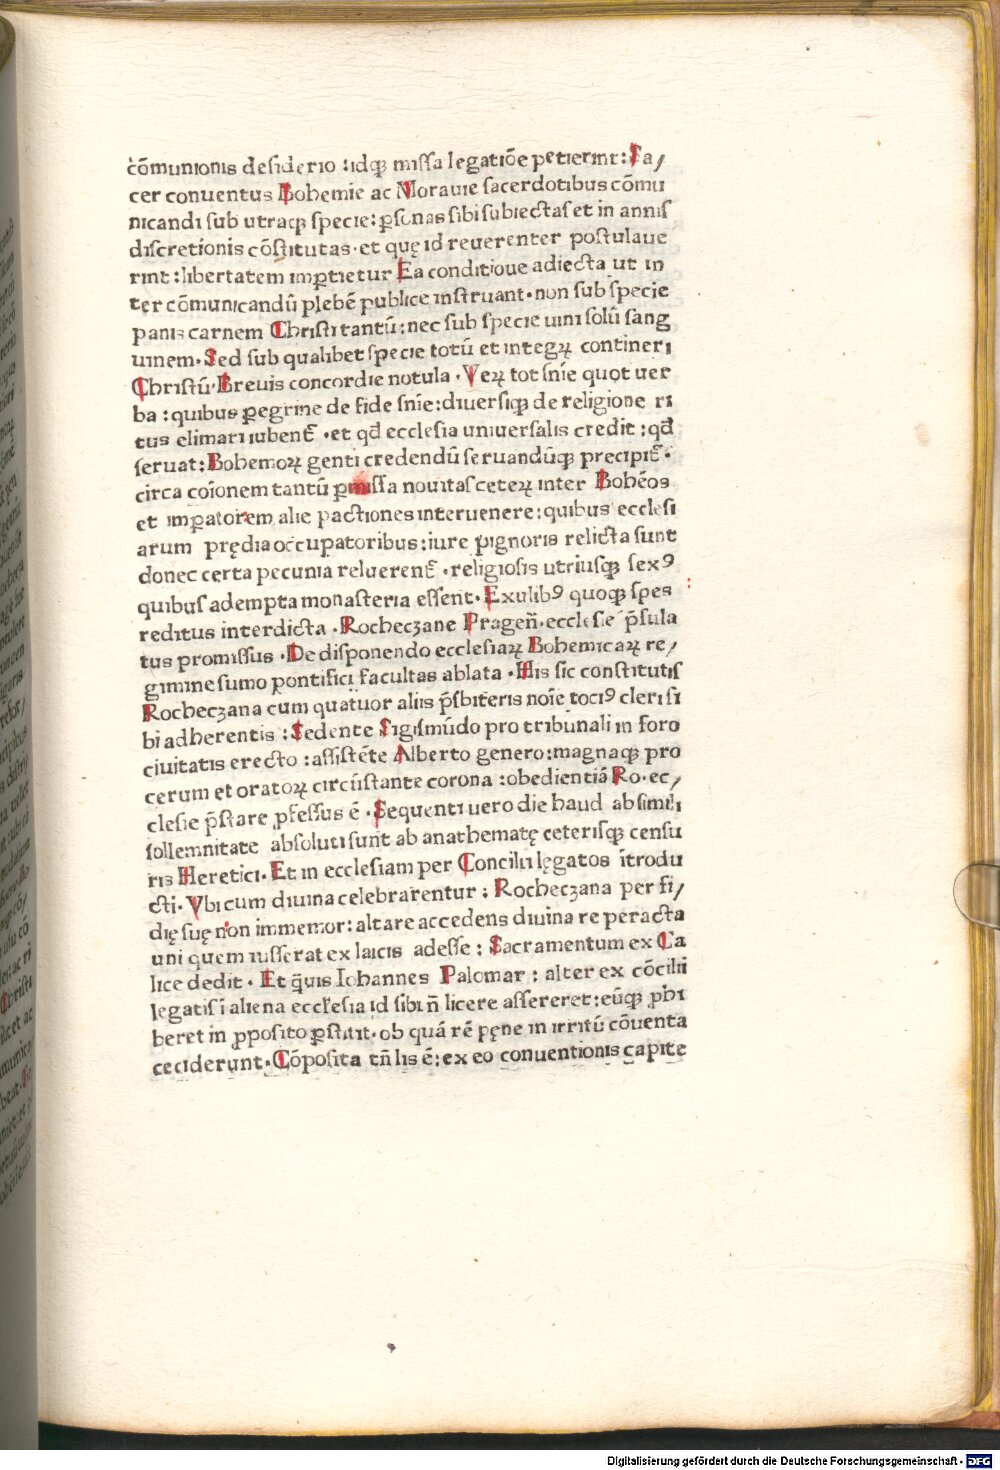 cōmunionis desiderio :idqꝫ missa legatiōe petierint: Sa/
cer conuentus Bohemie ac Morauie sacerdotibus cōmu
nicandi sub utraqꝫ specie: ꝑsonas sibi subiectas et in annis
discretionis cōstitutas· et quę id reuerenter postulaue
rint :libertatem imꝑtietur Ea conditioue adiecta ut in
ter cōmunicandū plebē publice instruant· non sub specie
panis carnem Christi tantū: nec sub specie uini solū sang
uinem· Sed sub qualibet specie totū et integꝝ contineri
Christū· Breuis concordie notula · Veꝝ tot snīe quot uer
ba : quibus ꝑegrine de fide snīe: diuersiqꝫ de religione ri
tus elimari iubent᷑ · et qd̄ ecclesia uniuersalis credit : qd̄
seruat: Bohemoꝝ genti credendū seruandūqꝫ precipit᷑ ·
circa coīonem tantū ꝑmissa nouitas ceteꝝ inter Bohēos
et imꝑatorem alie pactiones interuenere: quibus ecclesi
arum prędia occupatoribus: iure pignoris relicta sunt
donec certa pecunia reluerent᷑ · religiosis utriusqꝫ sexꝰ
quibus adempta monasteria essent· Exulibꝰ quoqꝫ spes
reditus interdicta · Rocheczane Pragen̄· ecclesie p̄sula
tus promissus · De disponendo ecclesiaꝝ Bohemicaꝝ re/
gimine sumo pontifici facultas ablata · His sic constitutis
Rocheczana cum quatuor aliis p̄sbiteris noīe tociꝰ cleri si
bi adherentis : Sedente Sigismūdo pro tribunali in foro
ciuitatis erecto : assistēte Alberto genero: magnaqꝫ pro
cerum et oratoꝝ circūstante corona : obedientiā Ro· ec/
clesie p̄stare ꝓfessus ē · Sequenti uero die haud absimili
sollemnitate absoluti sunt ab anathematę ceterisqꝫ censu
ris Heretici· Et in ecclesiam per Concilii lęgatos ītrodu
cti· Vbi cum diuina celebrarentur : Rocheczana per fi/
dię suę non immemor: altare accedens diuina re peracta
uni quem iusserat ex laicis adesse : Sacramentum ex Ca
lice dedit · Et q̄uis Iohannes Palomar : alter ex cōcilii
legatis ī aliena ecclesia id sibi n̄ licere assereret: eūqꝫ ꝓhi
beret in ꝓposito ꝑstitit· ob quā rē pęne in irritū cōuenta
ceciderunt· Cōposita tn̄ lis ē: ex eo conuentionis capite
Digitalisierung gefördert durch die Deutsche Forschungsgemeinschaft - DFG